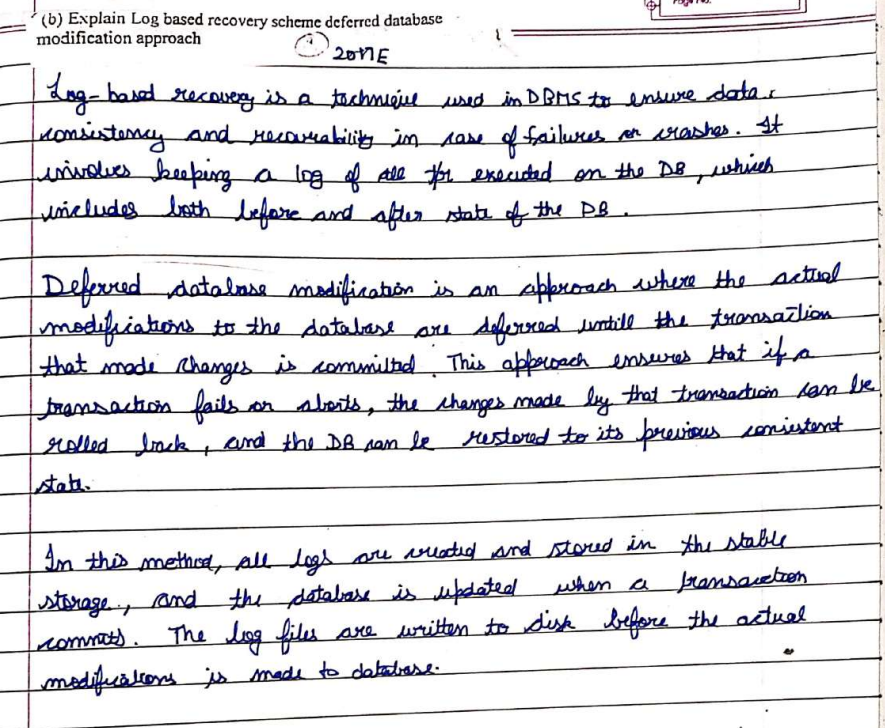 (b) Explain Log based recovery scheme deferred database
modification approach
Page No.
2017E
Log-based recovery is a technique used in DBMS to ensure data
consistency and recoverability in case of failures or crashes. It
involves keeping a log of all the executed on the DB, which
includes both before and after state of the DB.
Deferred database modification is an approach where the actual
modifications to the database are deferred untill the transaction
that made changes is committed. This approach ensures that if a
transaction fails or aborts, the changes made by that transaction can be
rolled back, and the DB can be restored to its previous consistent
state.
In this method, all logs are created and stored in the stable
storage, and the database is updated when a transaction
commits. The log files are written to disk before the actual
modifications is made to database.